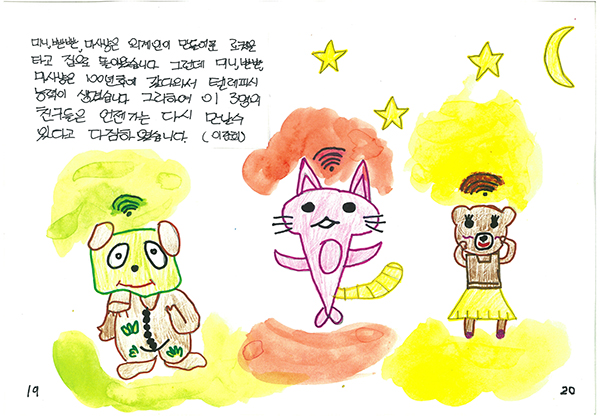 미니, 빤빤, 마사냥은 외계인이 만들어준 로켓을
타고 집으로 돌아왔습니다. 그런데 미니, 빤빤,
마사냥은 100년 후에 갔다와서 텔레파시
능력이 생겼습니다. 그리하여 이 3명의
친구들은 언젠가는 다시 만날수
있다고 다짐하였습니다.
19
20